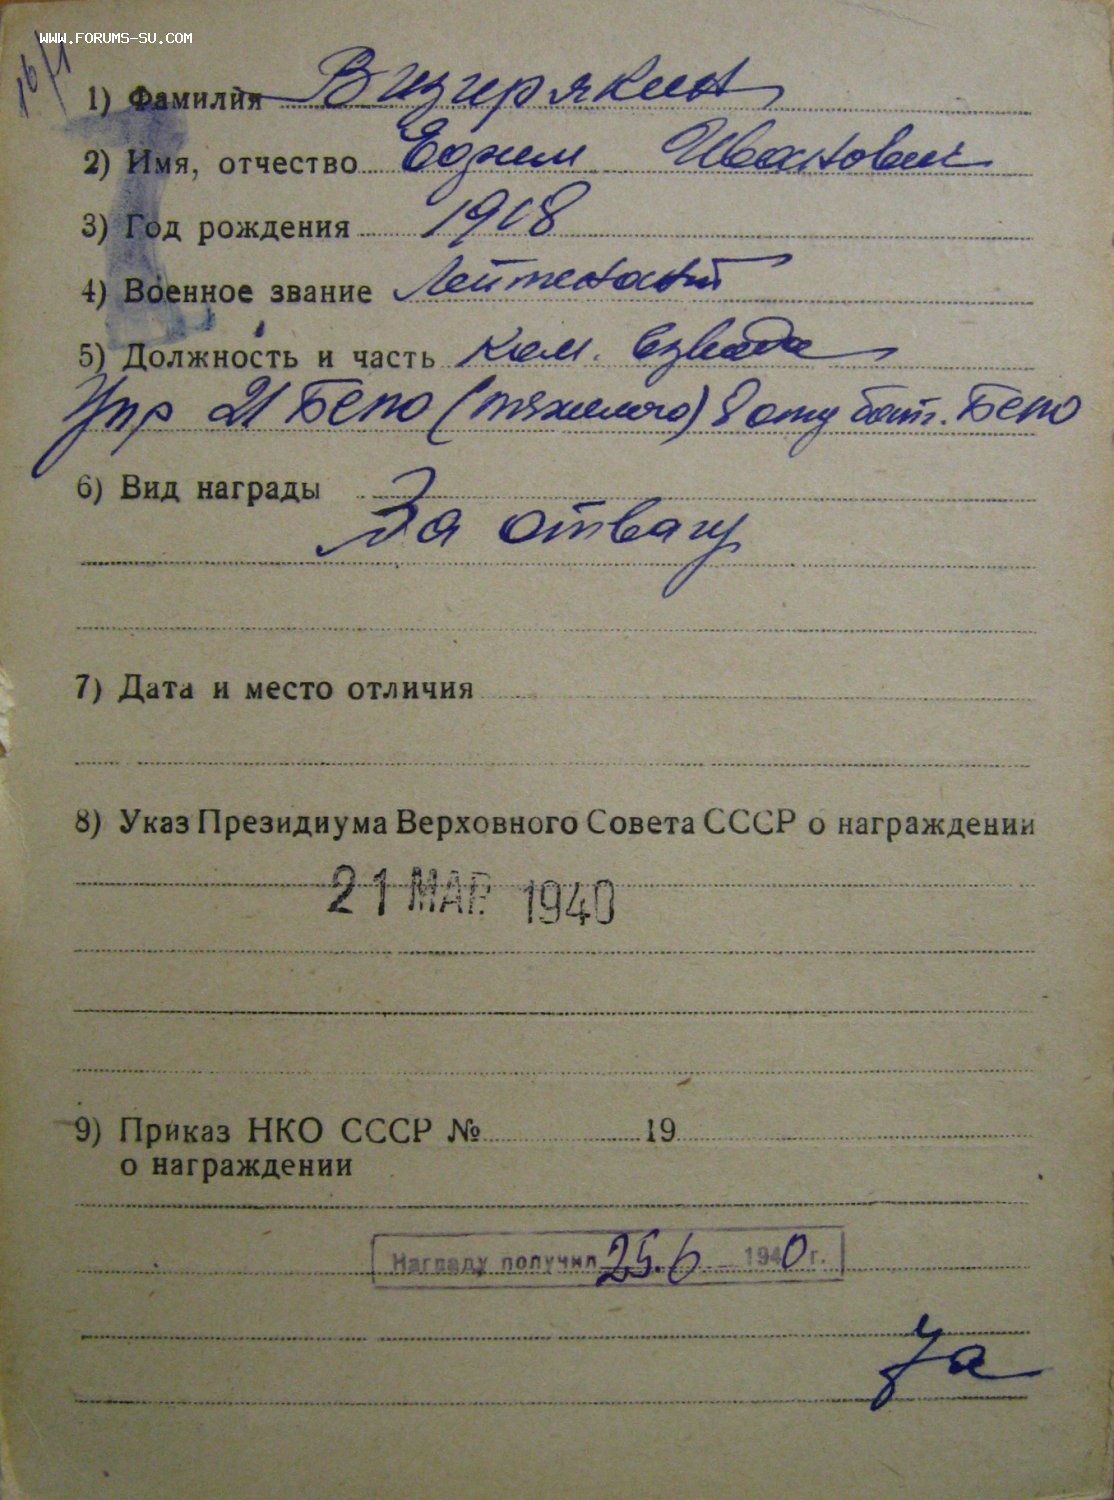 www.forums-su.com
16/1
1) Фамилия Визирякин
2) Имя, отчество Ефим Иванович
3) Год рождения 1918
4) Военное звание Лейтенант
5) Должность и часть Ком. взвода
Упр 21 Бепо (тяжелого) 8 отд бат. Бепо
6) Вид награды
За отвагу
7) Дата и место отличия
8) Указ Президиума Верховного Совета СССР о награждении
21 МАР 1940
9) Приказ НКО СССР № 19
о награждении
Награду получил 25.6 1940 г.